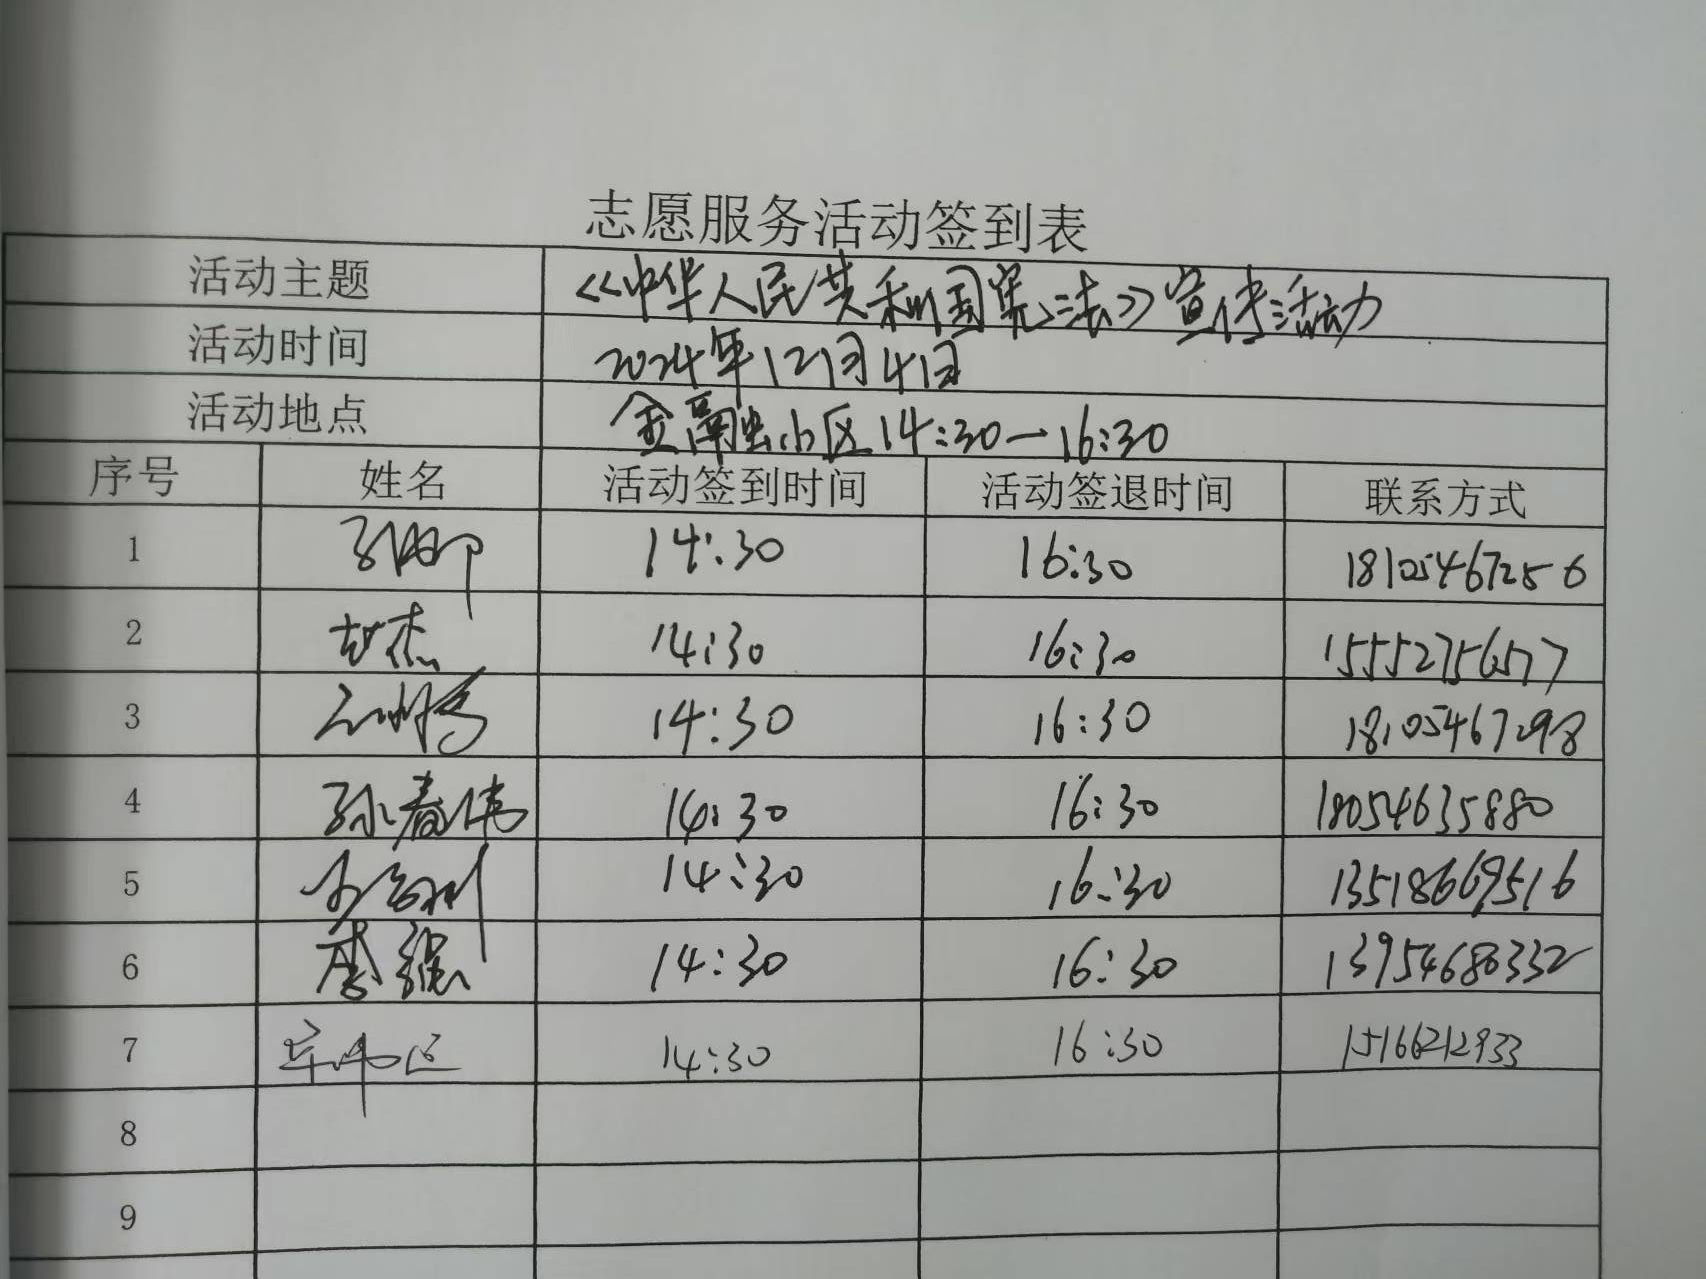 志愿服务活动签到表
活动主题 《中华人民共和国宪法》宣传活动
活动时间 2024年12月4日
活动地点 金融小区14:30—16:30
序号 姓名 活动签到时间 活动签退时间 联系方式
1 14:30 16:30 18105467256
2 赵杰 14:30 16:30 15552756577
3 14:30 16:30 18105467298
4 孙春伟 14:30 16:30 18054635880
5 14:30 16:30 13518669516
6 李强 14:30 16:30 13954680332
7 14:30 16:30 15166212933
8
9